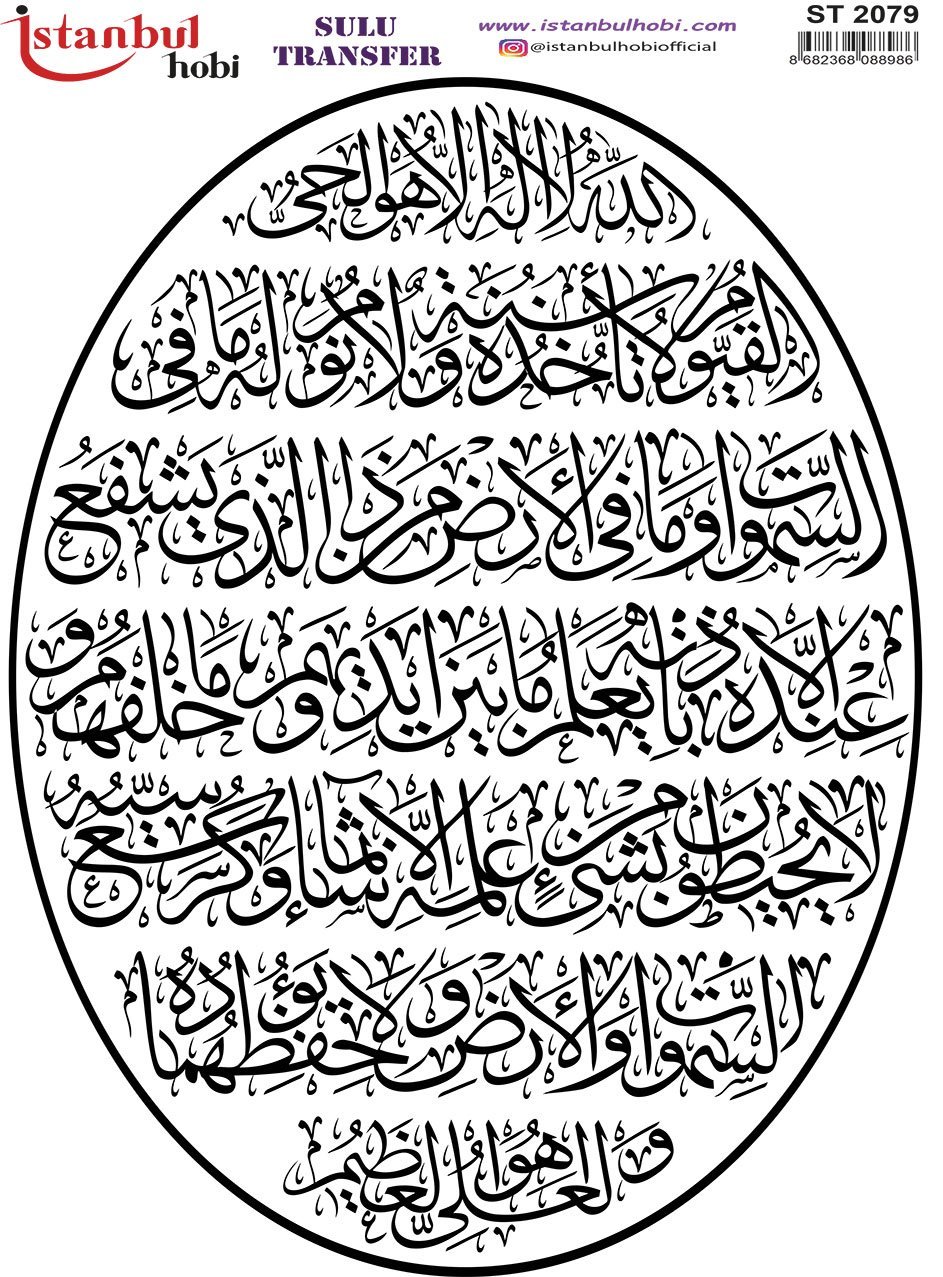 istanbul hobi
SULU TRANSFER
www.istanbulhobi.com
@istanbulhobiofficial
ST 2079
8 682368 088986
اللّٰهُ لا اله الّا هو الحىُّ
القيّومُ لا تأخُذُه سنةٌ ولا نومٌ له ما فى
السّموات وما فى الأرض من ذا الّذى يشفعُ
عنده الّا باذنه يعلم ما بين ايديهم وما خلفهم و
لا يحيطون بشىءٍ من علمه الّا بما شاء وسع كرسيّه
السّموات والأرض ولا يؤده حفظهما
وهو العلىّ العظيم